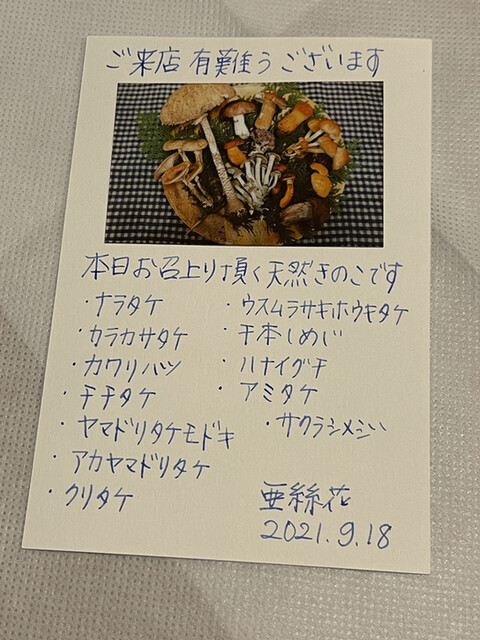 ご来店 有難うございます
本日お召上り頂く天然きのこです
・ナラタケ
・カラカサタケ
・カワリハツ
・チチタケ
・ヤマドリタケモドキ
・アカヤマドリタケ
・クリタケ
・ウスムラサキホウキタケ
・千本しめじ
・ハナイグチ
・アミタケ
・サクラシメジ
亜絲花
2021.9.18